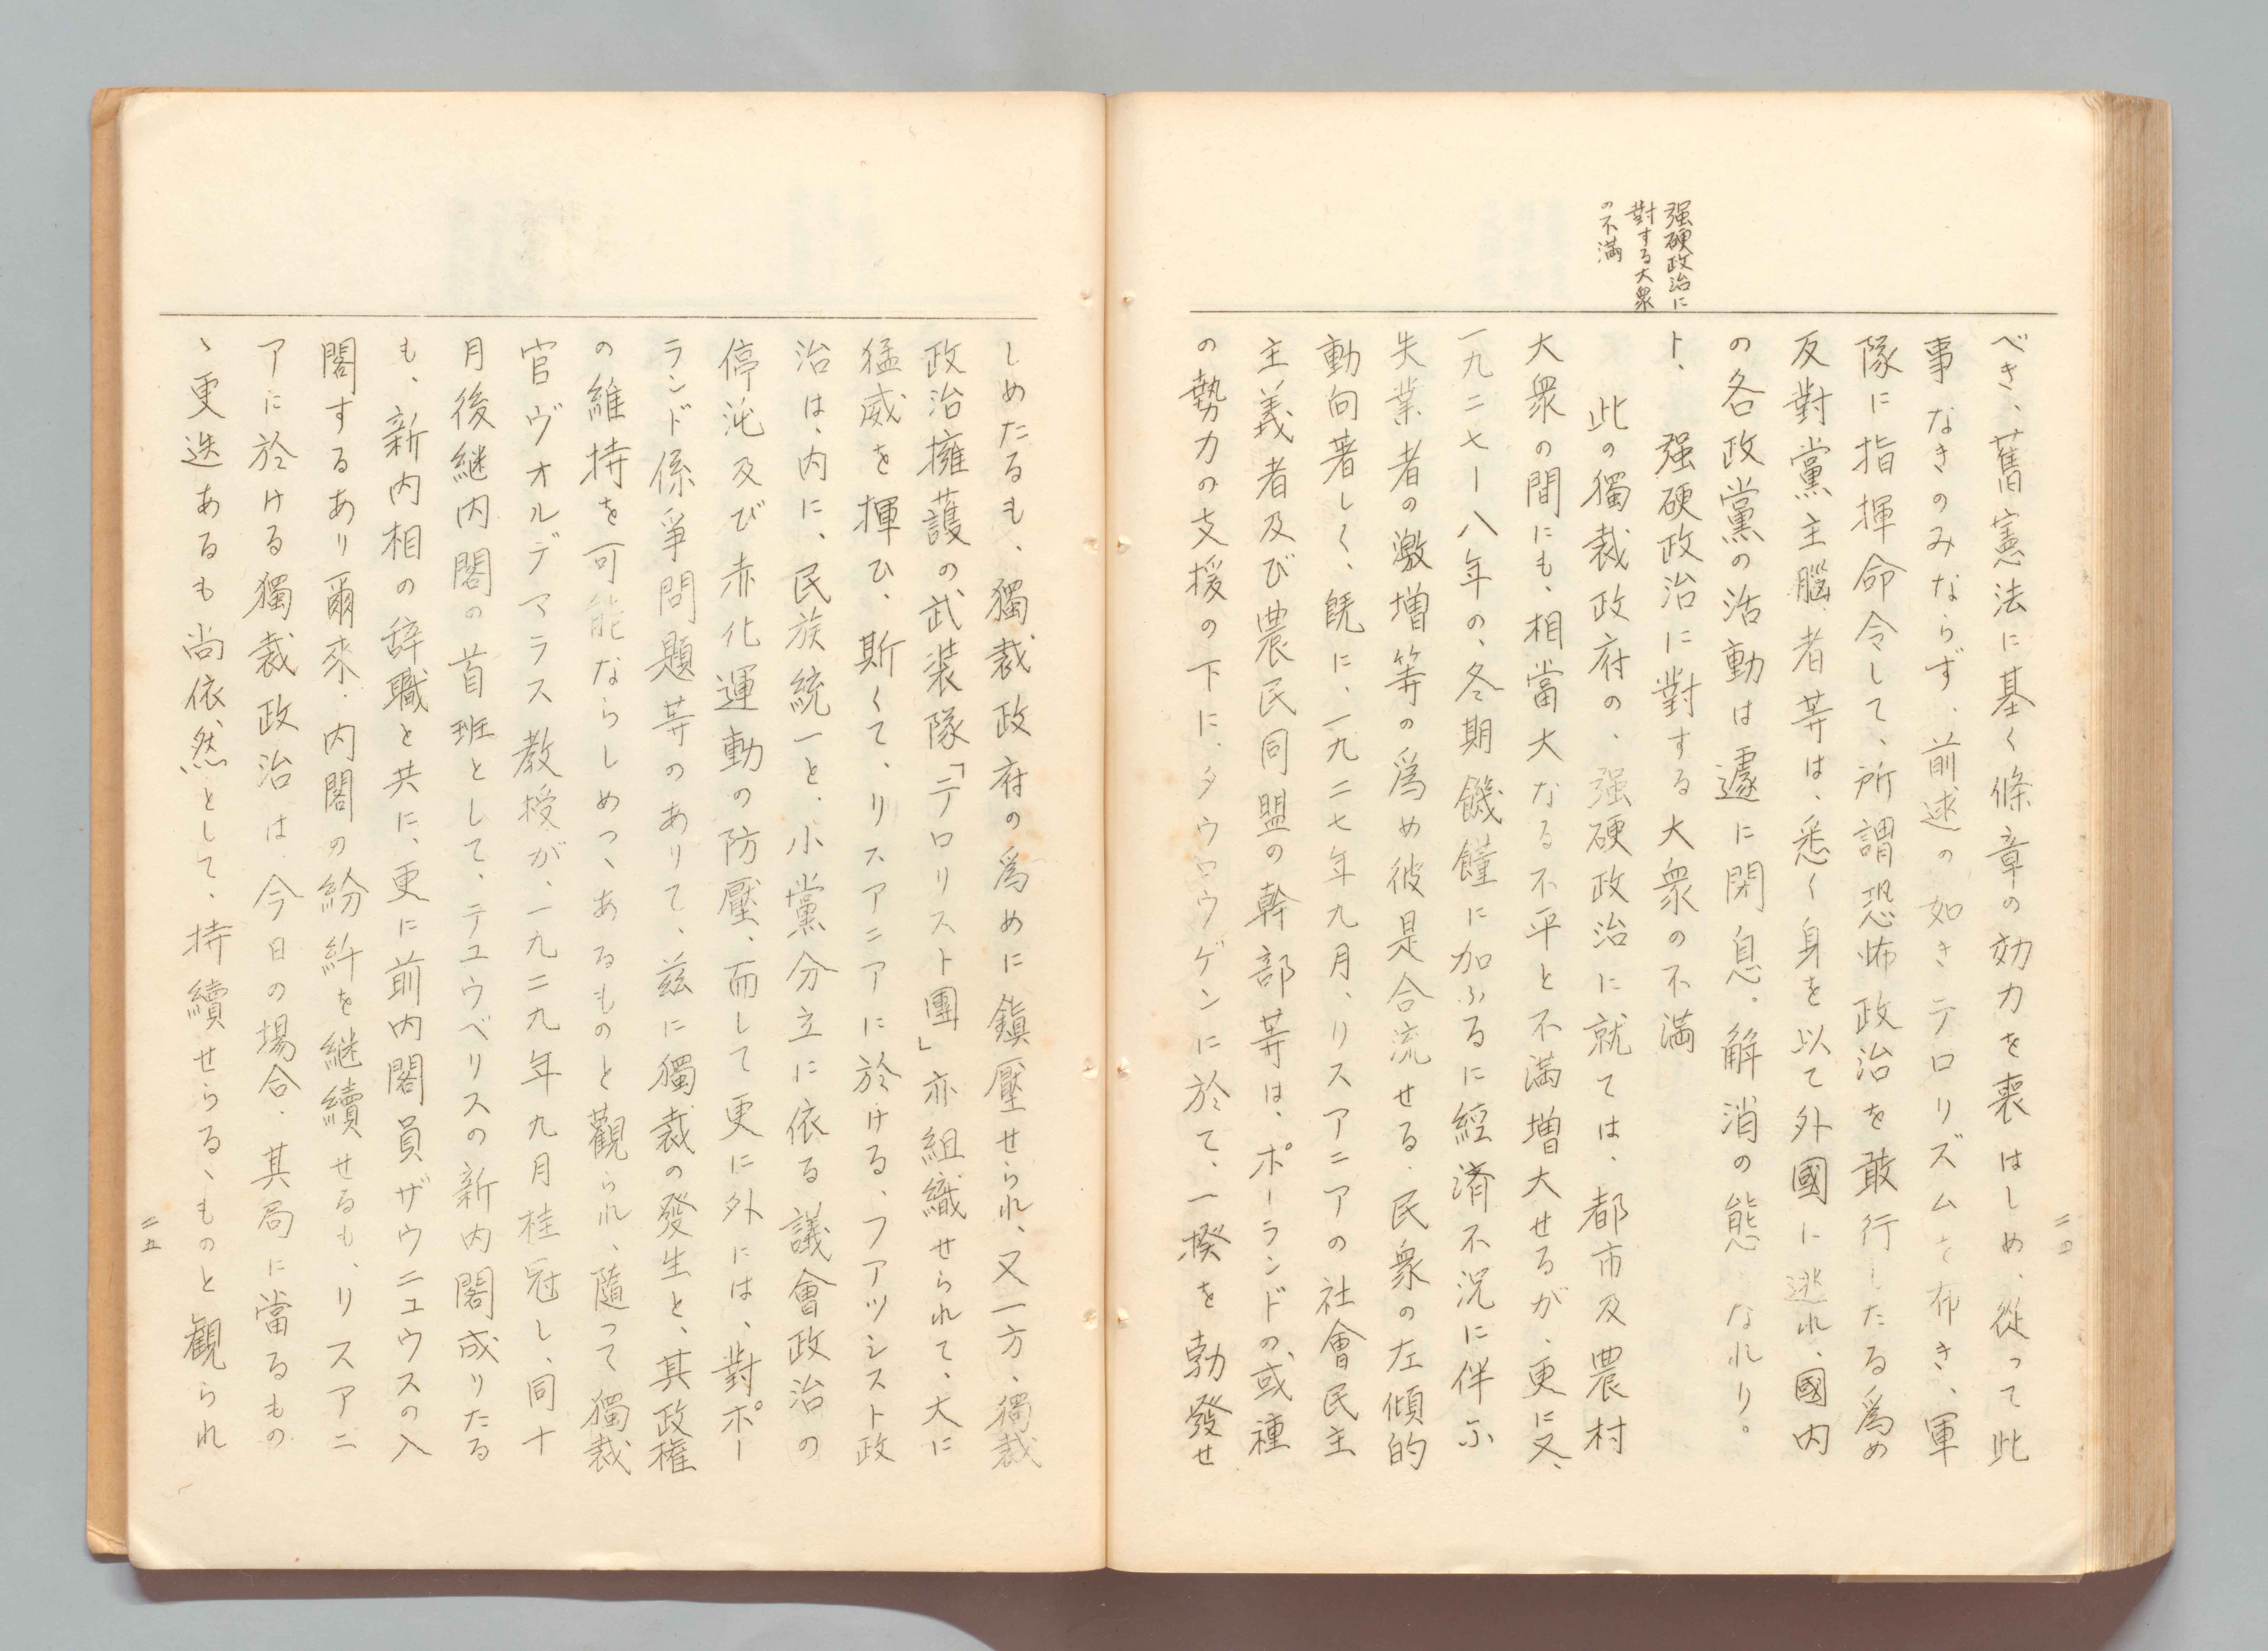 强硬政治に
對する大衆
の不満
べき、舊憲法に基く條章の効力を喪はしめ、從って此
事なきのみならず、前述の如きテロリズムを布き、軍
隊に指揮命令して、所謂恐怖政治を敢行したる爲め
反對黨主腦者等は、悉く身を以て外國に逃れ、國内
の各政黨の活動は遽に閉息。解消の態となれり。
ト、强硬政治に對する大衆の不満
此の獨裁政府の、强硬政治に就ては、都市及農村
大衆の間にも、相當大なる不平と不満増大せるが、更に又、
一九二七ー八年の、冬期饑饉に加ふるに經濟不況に伴ふ
失業者の激増等の爲め彼是合流せる、民衆の左傾的
動向著しく、旣に、一九二七年九月、リスアニアの社會民主
主義者及び農民同盟の幹部等は、ポーランドの、或種
の勢力の支援の下に、タウロウゲンに於て、一揆を勃發せ
二四
しめたるも、獨裁政府の爲めに鎭壓せられ、又一方、獨裁
政治擁護の武装隊「テロリスト團」亦組織せられて、大に
猛威を揮ひ、斯くて、リスアニアに於ける、フアツシスト政
治は、内に、民族統一と、小黨分立に依る議會政治の
停沌及び赤化運動の防壓、而して更に外には、對ポー
ランド係爭問題等のありて、茲に獨裁の發生と、其政權
の維持を可能ならしめつゝあるものと觀られ、隨って獨裁
官ヴオルデマラス教授が、一九二九年九月桂冠し、同十
月後継内閣の首班として、テユウベリスの新内閣成りたる
も、新内相の辞職と共に、更に前内閣員ザウニユウスの入
閣するあり爾來、内閣の紛糾を継續せるも、リスアニ
アに於ける獨裁政治は、今日の場合、其局に當るもの
ゝ更迭あるも尚依然として、持續せらるゝものと観られ
二五